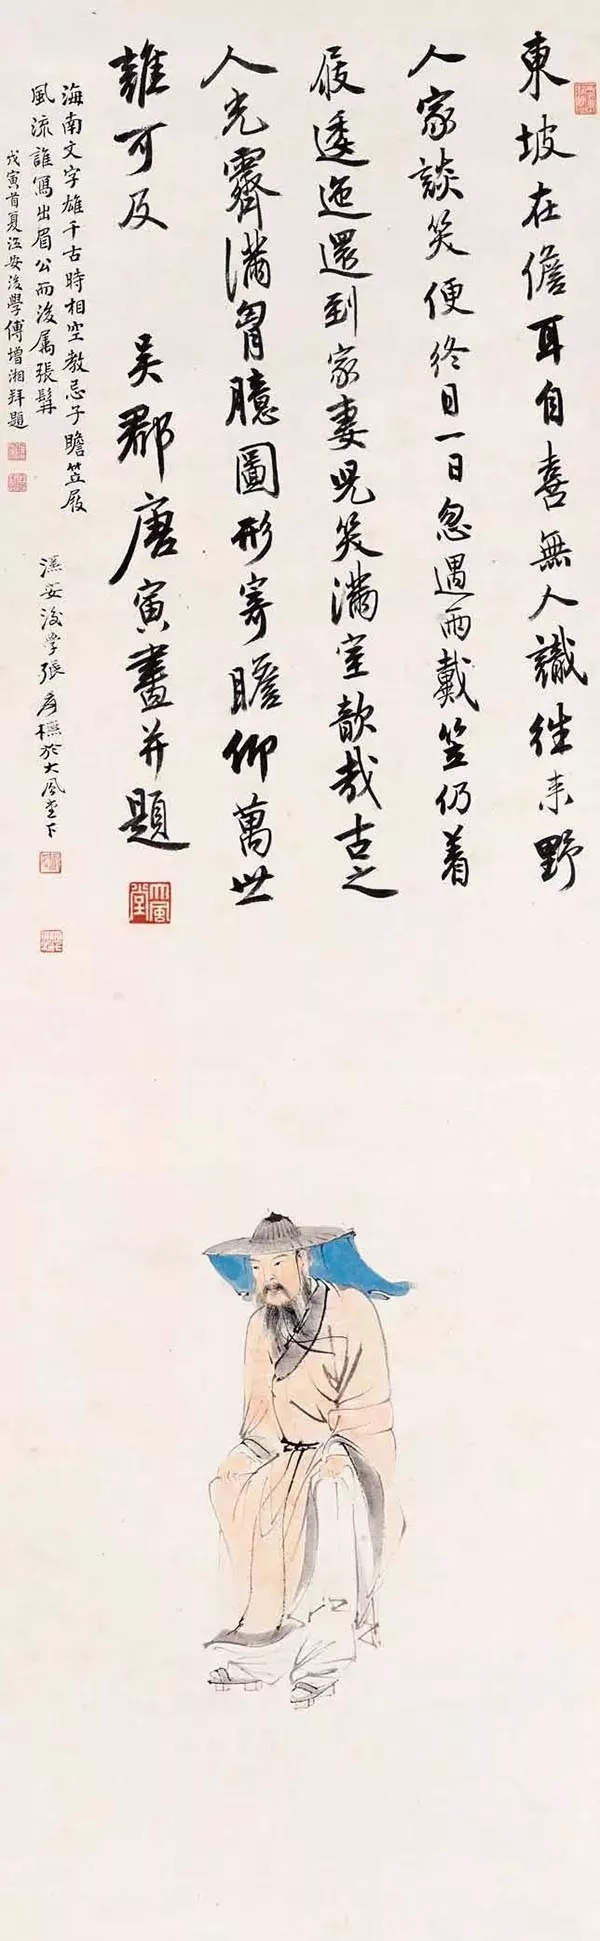 東坡在儋耳自喜無人識往来野
人家談笑便終日一日忽遇雨戴笠仍着
屐逶迤還到家妻児笑滿室歆哉古之
人光霽滿胷臆圖形寄瞻仰萬世
誰可及 吴郡唐寅畫并題
大風堂
海南文字雄千古時相空教忌子瞻笠屐
風流誰寫出眉公而後属張髯
戊寅首夏江安後學傅增湘拜題
漢安後学張爰橅於大風堂下